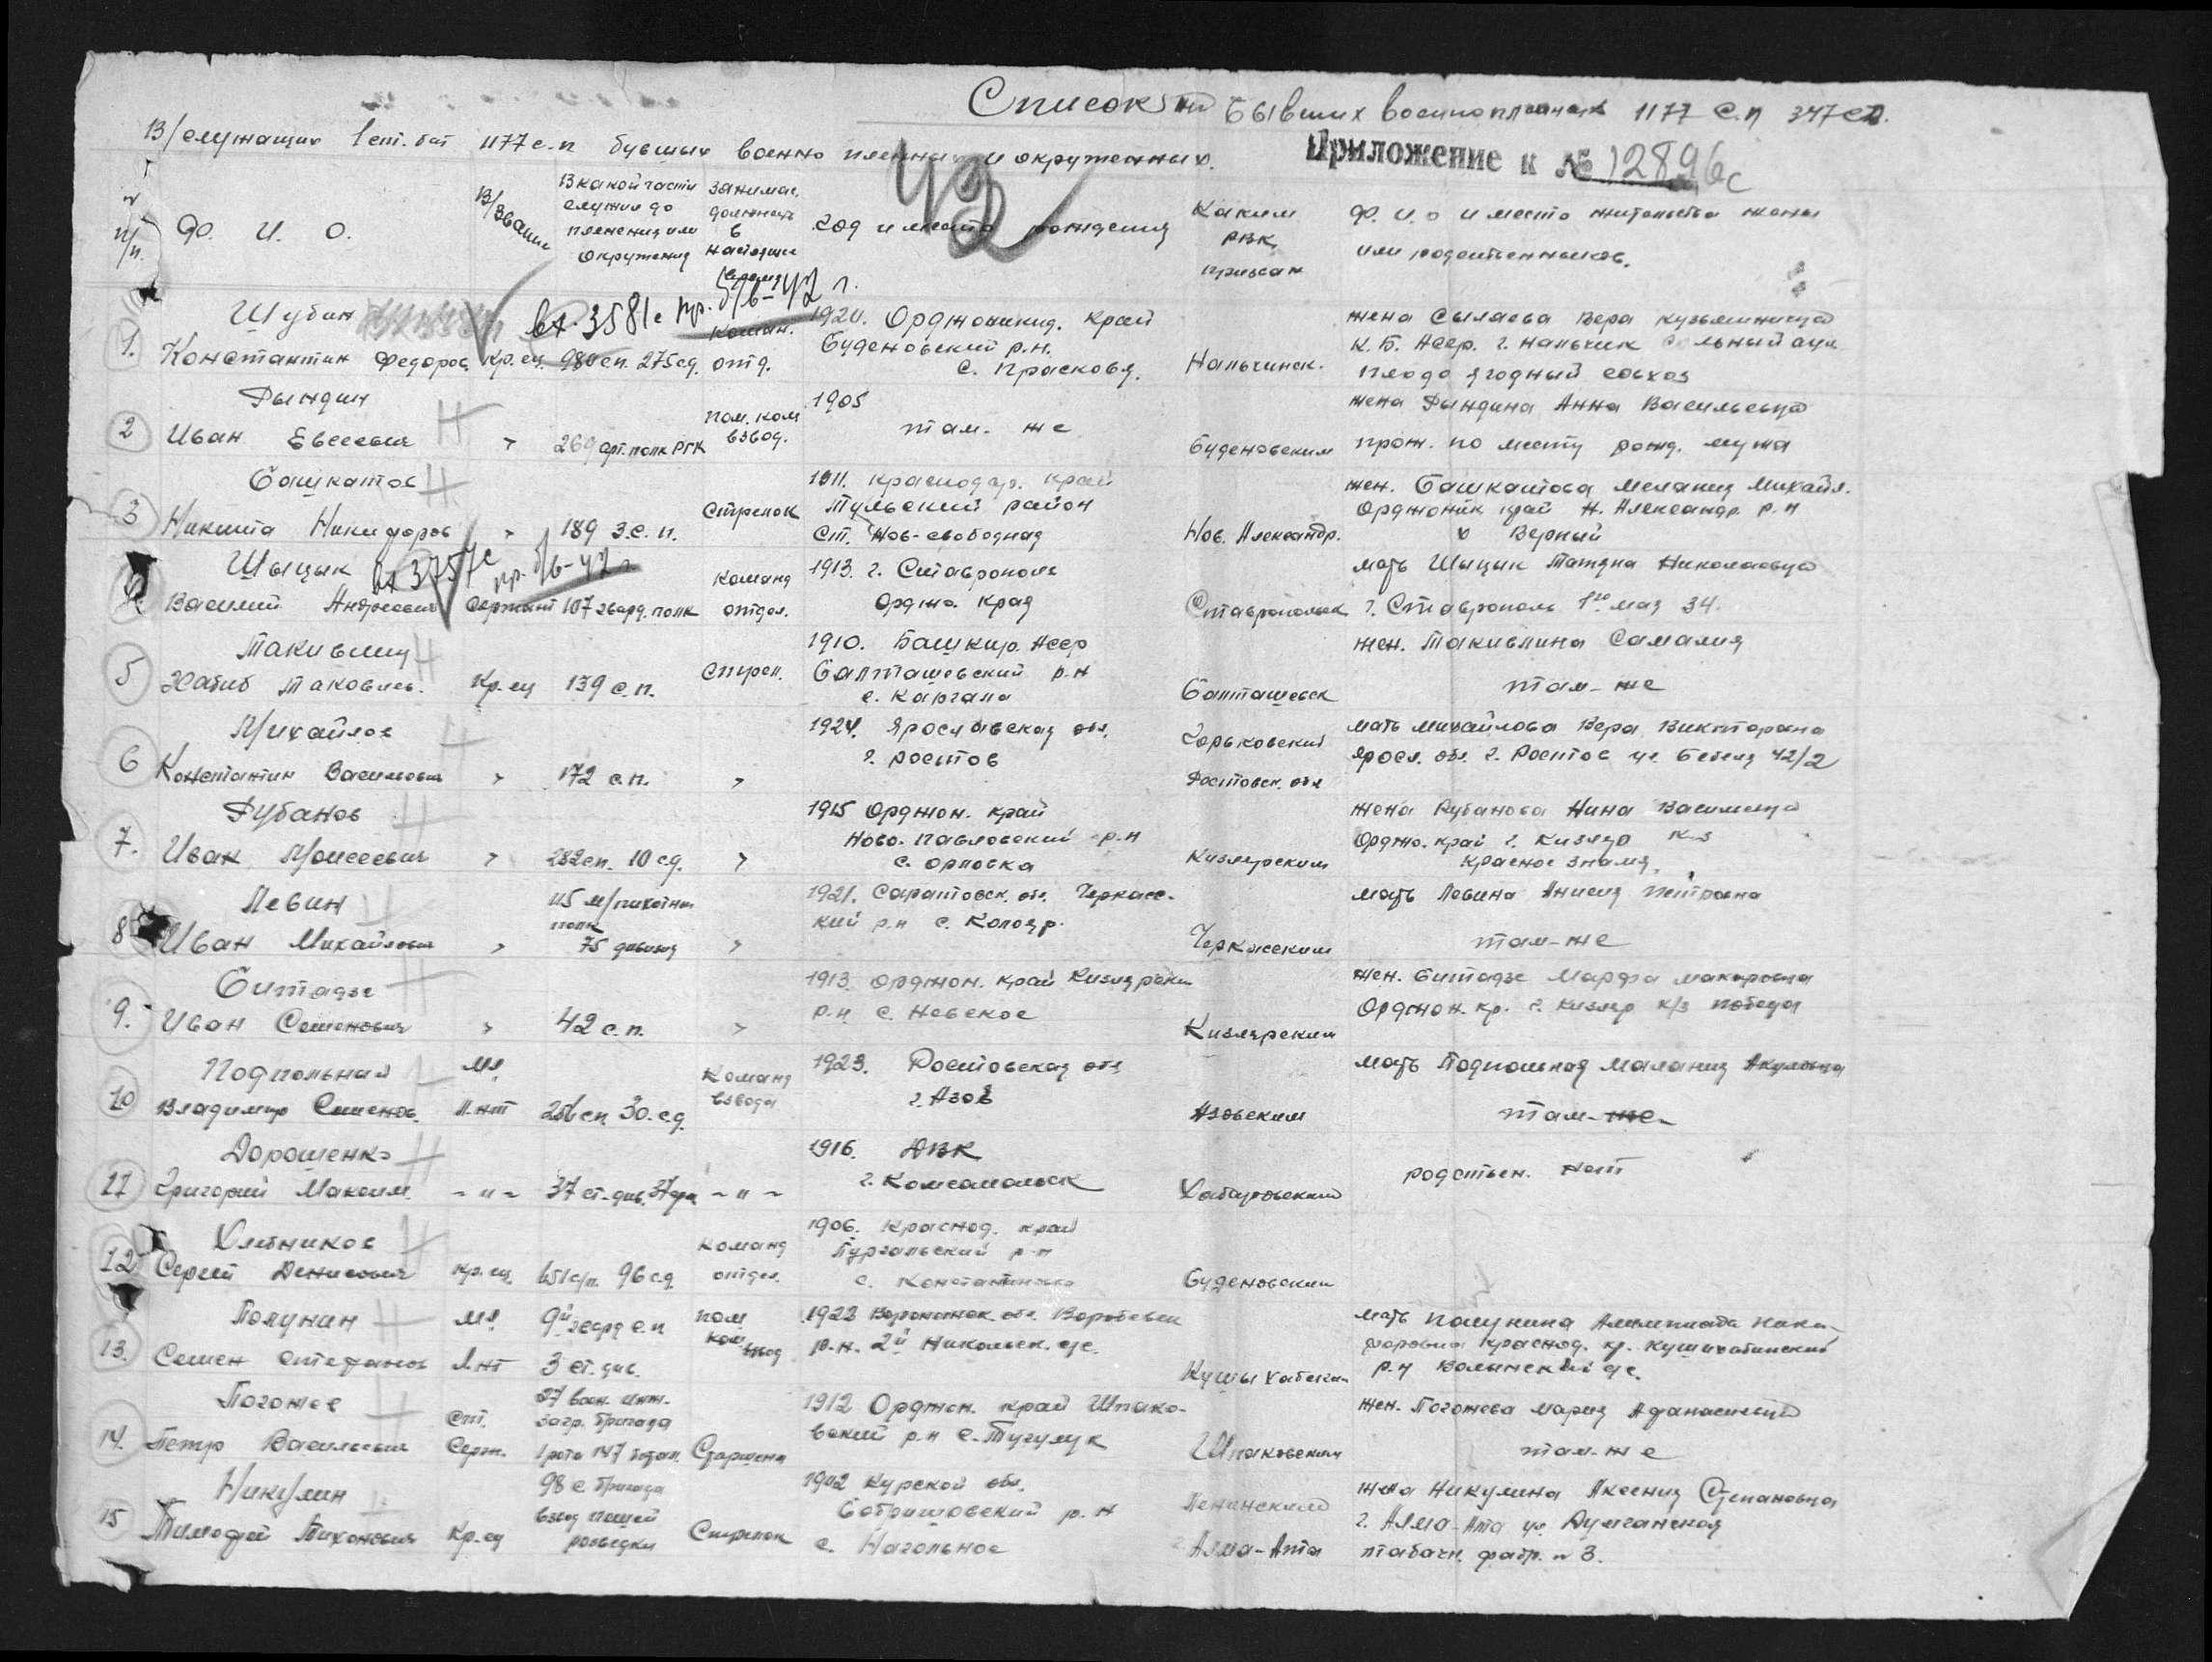 Список бывших военнопленных 1177 с.п 347 сд.
В/служащих 1 ст. бат 1177 с.п бывших военно пленных и окруженных.
Приложение к № 12896с
п/п. Ф. И. О. В/звание В какой части служил до пленения или окружения занимае. должность в настоящее время год и место рождения Каким РВК призван Ф. И. О и место жительства жены или родственников.
вх. 3581с пр. 5/6-42 г.
1. Шубин Константин Федоров. Кр.ец. 980 сп. 275 сд. коман. отд. 1920. Орджоникид. край Буденовский р.н. с. Прасковя. Нальчинск. жена Сылаева Вера Кузьминична К. Б. Асср. г. Нальчик плодо ягодный совхоз
2 Рындин Иван Евсеевич " 269 арт. полк РГК пом. ком взвод. 1905 там-же Буденовским жена Рындина Анна Васильевна прож. по месту рожд. мужа
3 Башкатов Никита Никифоров " 189 З.с.п. Стрелок 1911. Краснодар. край Тульский район ст. Нов-свободная Нов. Александр. жен. Башкатова Мелания Михайл. Орджоник край Н. Александр. р.н х Верный
вх 3757с пр. 5/6-42 г
4. Шыцык Василий Андреевич Сержант 107 гвард. полк Команд отдел. 1913. г. Ставрополь Орджо. края Ставропольск мать Шыцык Татяна Николаевна г. Ставрополь 1го мая 34.
5 Хабиб Таковлев. Кр.ец 139 с.п. Стрел. 1910. Башкир. Асср Балташевский р.н с. Каргала Балташевск жен. Такивлина Самалия там-же
6 Михайлов Константин Васильевич " 172 с.п. " 1924. Ярославская обл. г. Ростов Горьковский Ростовск. обл мать Михайлова Вера Викторовна Яросл. обл. г. Ростов ул. Бебеля 42/2
7. Рубанов Иван Моисеевич " 282 сп. 10 сд. " 1915 Орджон. край Ново. Павловский р.н с. Орловка Кизлярским жена Рубанова Нина Васильевна Орджо. край г. Кизляр к-з Красное знамя.
8 Левин Иван Михайлович " 115 м/пихотный полк 75 дивизия " 1921. Саратовск. обл. Черкасский р.н с. Колояр. Черкасским мать Левина Анисия Петровна там-же
9. Битадзе Иван Семенович " 42 с.п. " 1913. Орджон. край Кизлярский р.н с. Невское Кизлярским жен. Битадзе Марфа Макаровна Орджон. кр. г. Кизляр к/з победа
10 Подпольный Владимир Семенов. Мл. Л.нт 256 сп 30. с.д. Команд взвода 1923. Ростовская обл г. Азов Азовским мать Подпольная Малания там-же
11 Дорошенко Григорий Максим. -"- 37 ст. див. -"- 1916. ДВК г. Комсомольск Хабаровский родствен. нет
12 Сергей Денисович Кр.ец 651 с/п. 96 с.д. Команд отдел. 1906. Краснод. край р-н с. Константиновка Буденовским
13. Полунин Семен Стефанов Мл. Л.нт 9й гвард с.п 3 ст. див. пом ком взвод 1922 Воронежск. обл. Воробьевск р.н. 2й Никольск. с/с. мать Полунина Алимпиада Ники-форовна Краснод. кр. р.н Волынский с/с.
14. Погожев Петр Васильевич Ст. Серж. 27 воен. инж. загр. Бригада 1 рота 147 батал. Старшина 1912 Орджон. край Шпаковский р-н с. Тугулук Шпаковским жен. Погожева Мария Афанасиевна там-же
15 Никулин Тимофей Тихонович Кр.ец 98 с Бригада взвод пешей разведки Стрелок 1902 Курской обл. р.н с. Нагольное Ленинский Алма-Ата жена Никулина Аксения Степановна г. Алма-Ата ул Дунганская табачн. фабр. н 3.